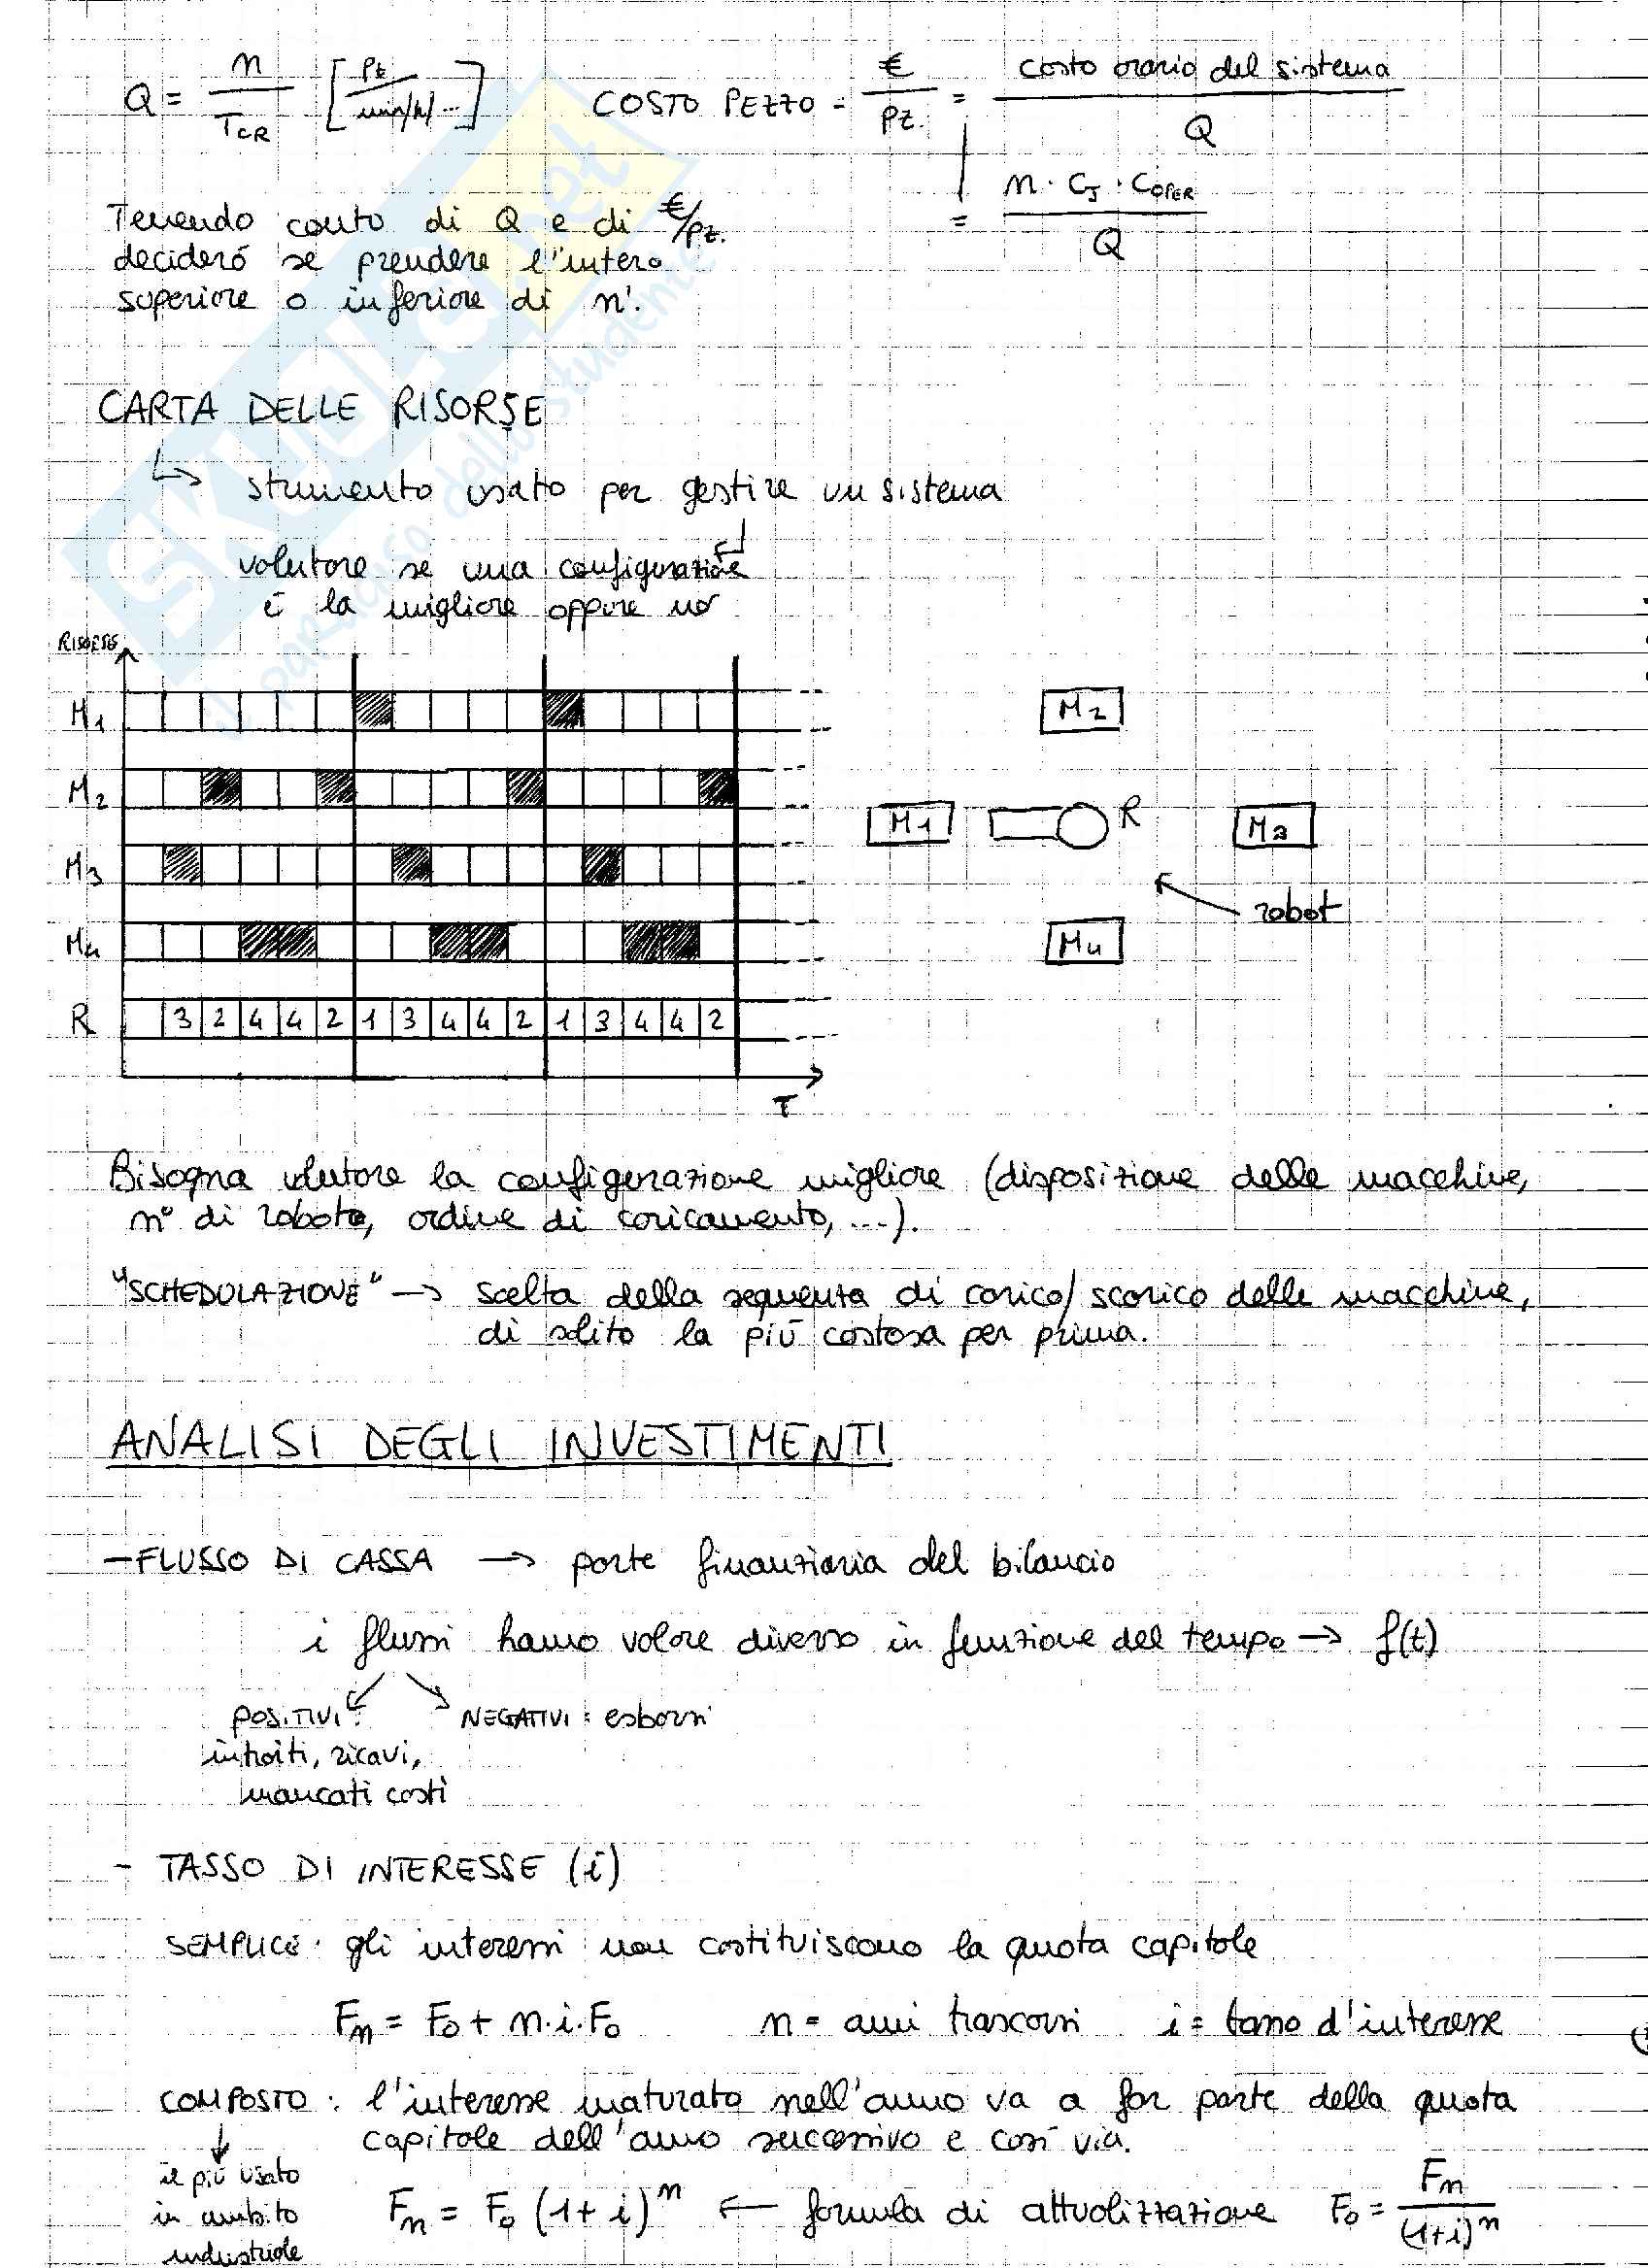 Q = n / T_CR [pz / min/h/...]   COSTO PEZZO = € / pz. = costo orario del sistema / Q
= n · C_J · C_OPER / Q
Tenendo conto di Q e di €/pz.
decideró se prendere l'intero
superiore o inferiore di n'.
CARTA DELLE RISORSE
↳ strumento usato per gestire un sistema
valutare se una configurazione
è la migliore oppure no
RISORSE
M1
M2
M3
M4
R 3 2 4 4 2 1 3 4 4 2 1 3 4 4 2
T
M2
M1 R M3
robot
M4
Bisogna valutare la configurazione migliore (disposizione delle macchine,
n° di robot, ordine di caricamento, ...).
"SCHEDULAZIONE" → scelta della sequenza di carico/scarico delle macchine,
di solito la più costosa per prima.
ANALISI DEGLI INVESTIMENTI
- FLUSSO DI CASSA → parte finanziaria del bilancio
i flussi hanno valore diverso in funzione del tempo → f(t)
POSITIVI: NEGATIVI: esborsi
introiti, ricavi,
mancati costi
- TASSO DI INTERESSE (i)
SEMPLICE: gli interessi non costituiscono la quota capitale
Fn = F0 + n·i·F0   n = anni trascorsi   i = tasso d'interesse
COMPOSTO: l'interesse maturato nell'anno va a far parte della quota
capitale dell'anno successivo e così via.
↓
il più usato
in ambito
industriale
Fn = F0 (1+i)^n ← formula di attualizzazione F0 = Fn / (1+i)^n
SKUOLA.net
il paradiso dello studente